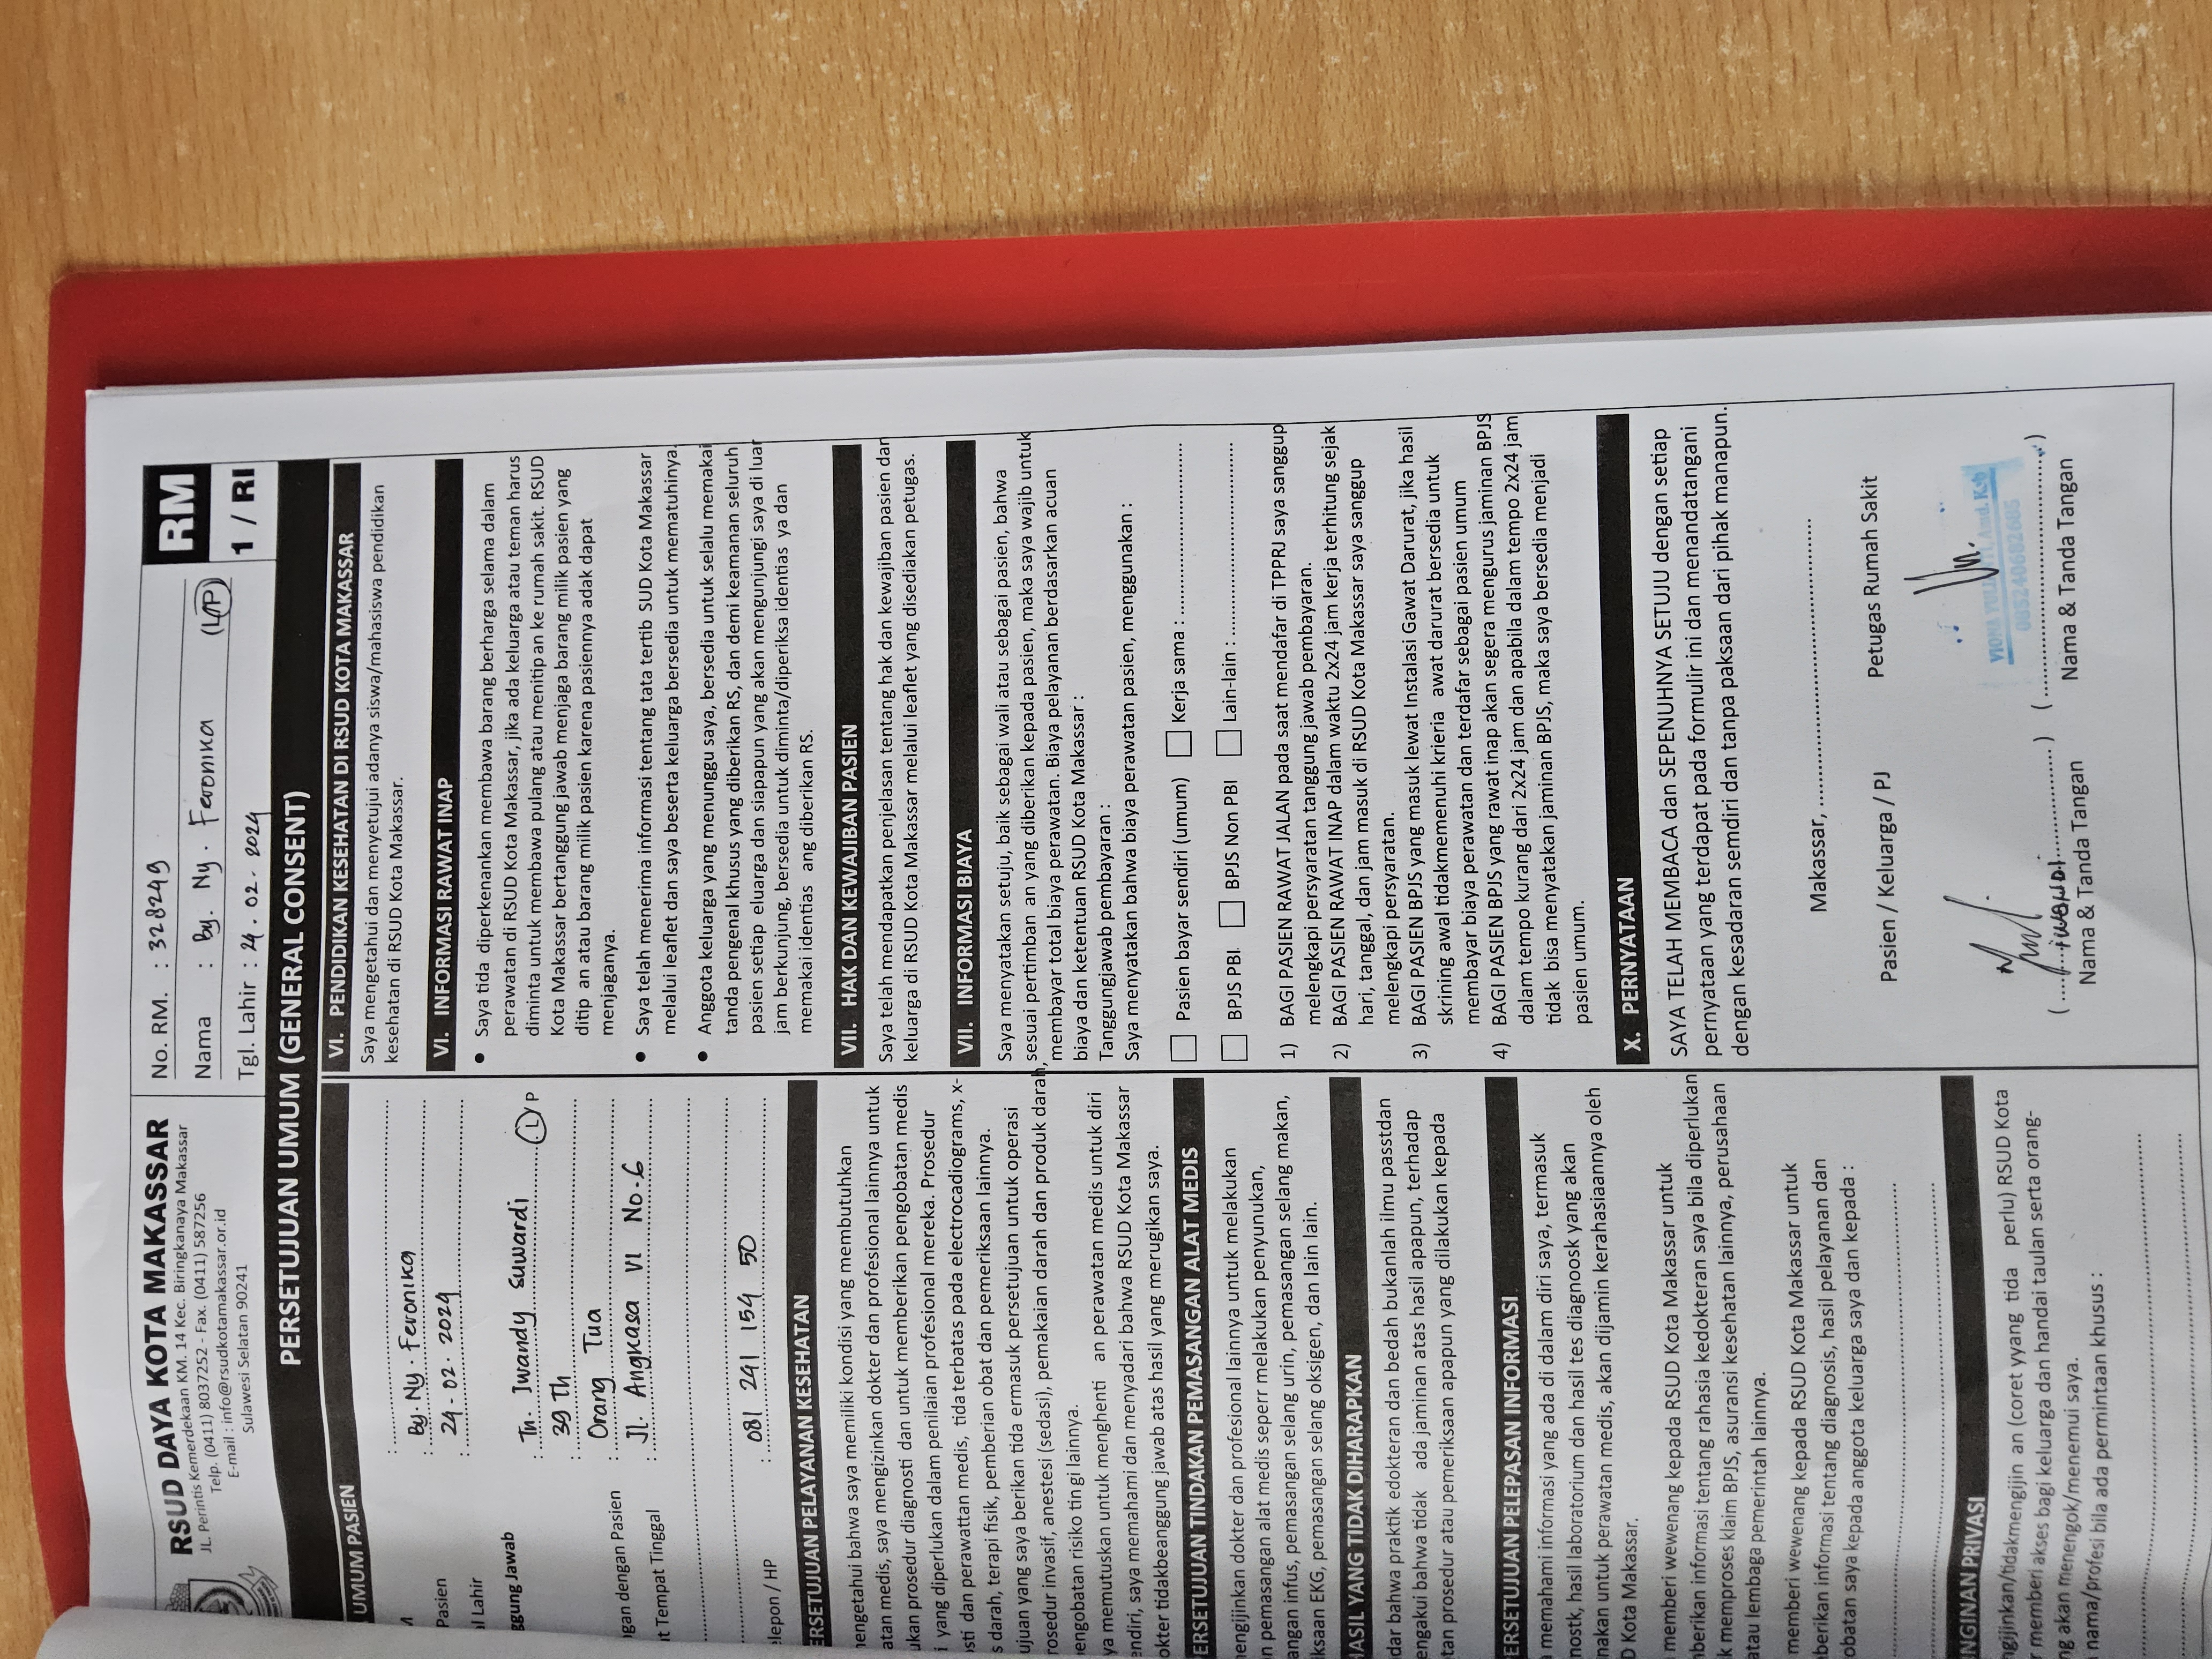 RSUD DAYA KOTA MAKASSAR
JL. Perintis Kemerdekaan KM. 14 Kec. Biringkanaya Makassar
Telp. (0411) 8037252 - Fax. (0411) 587256
E-mail : info@rsudkotamakassar.or.id
Sulawesi Selatan 90241
No. RM. : 328249
Nama : By. Ny. Feronika (L/P)
Tgl. Lahir : 24. 02. 2024
RM
1 / RI
PERSETUJUAN UMUM (GENERAL CONSENT)
UMUM PASIEN
Pasien : By. Ny. Feronika
l Lahir : 24 - 02 - 2024
ggung Jawab : Tn. Iwandy Suwardi L / P
: 39 Th
ngan dengan Pasien : Orang Tua
t Tempat Tinggal : Jl. Angkasa VI No. 6
elepon / HP : 081 241 154 50
ERSETUJUAN PELAYANAN KESEHATAN
engetahui bahwa saya memiliki kondisi yang membutuhkan
atan medis, saya mengizinkan dokter dan profesional lainnya untuk
ukan prosedur diagnosti dan untuk memberikan pengobatan medis
i yang diperlukan dalam penilaian profesional mereka. Prosedur
osti dan perawattan medis, tida terbatas pada electrocadiograms, x-
s darah, terapi fisik, pemberian obat dan pemeriksaan lainnya.
ujuan yang saya berikan tida ermasuk persetujuan untuk operasi
rosedur invasif, anestesi (sedasi), pemakaian darah dan produk darah,
engobatan risiko tingi lainnya.
ya memutuskan untuk menghenti an perawatan medis untuk diri
endiri, saya memahami dan menyadari bahwa RSUD Kota Makassar
okter tidakbeanggung jawab atas hasil yang merugikan saya.
ERSETUJUAN TINDAKAN PEMASANGAN ALAT MEDIS
engijinkan dokter dan profesional lainnya untuk melakukan
n pemasangan alat medis seperr melakukan penyunukan,
angan infus, pemasangan selang urin, pemasangan selang makan,
iksaan EKG, pemasangan selang oksigen, dan lain lain.
HASIL YANG TIDAK DIHARAPKAN
dar bahwa praktik edokteran dan bedah bukanlah ilmu pastdan
engakui bahwa tidak ada jaminan atas hasil apapun, terhadap
tan prosedur atau pemeriksaan apapun yang dilakukan kepada
ERSETUJUAN PELEPASAN INFORMASI
memahami informasi yang ada di dalam diri saya, termasuk
nostk, hasil laboratorium dan hasil tes diagnoosk yang akan
nakan untuk perawatan medis, akan dijamin kerahasiaannya oleh
D Kota Makassar.
memberi wewenang kepada RSUD Kota Makassar untuk
berikan informasi tentang rahasia kedokteran saya bila diperlukan
k memproses klaim BPJS, asuransi kesehatan lainnya, perusahaan
atau lembaga pemerintah lainnya.
memberi wewenang kepada RSUD Kota Makassar untuk
berikan informasi tentang diagnosis, hasil pelayanan dan
obatan saya kepada anggota keluarga saya dan kepada :
NGINAN PRIVASI
ngijinkan/tidakmengijin an (coret yyang tida perlu) RSUD Kota
r memberi akses bagi keluarga dan handai taulan serta orang-
ng akan menengok/menemui saya.
nama/profesi bila ada permintaan khusus :
VI. PENDIDIKAN KESEHATAN DI RSUD KOTA MAKASSAR
Saya mengetahui dan menyetujui adanya siswa/mahasiswa pendidikan
kesehatan di RSUD Kota Makassar.
VI. INFORMASI RAWAT INAP
• Saya tida diperkenankan membawa barang berharga selama dalam
perawatan di RSUD Kota Makassar, jika ada keluarga atau teman harus
diminta untuk membawa pulang atau menitip an ke rumah sakit. RSUD
Kota Makassar bertanggung jawab menjaga barang milik pasien yang
ditip an atau barang milik pasien karena pasiennya adak dapat
menjaganya.
• Saya telah menerima informasi tentang tata tertib SUD Kota Makassar
melalui leaflet dan saya beserta keluarga bersedia untuk mematuhinya.
• Anggota keluarga yang menunggu saya, bersedia untuk selalu memakai
tanda pengenal khusus yang diberikan RS, dan demi keamanan seluruh
pasien setiap eluarga dan siapapun yang akan mengunjungi saya di luar
jam berkunjung, bersedia untuk diminta/diperiksa identias ya dan
memakai identias ang diberikan RS.
VII. HAK DAN KEWAJIBAN PASIEN
Saya telah mendapatkan penjelasan tentang hak dan kewajiban pasien dan
keluarga di RSUD Kota Makassar melalui leaflet yang disediakan petugas.
VII. INFORMASI BIAYA
Saya menyatakan setuju, baik sebagai wali atau sebagai pasien, bahwa
sesuai pertimban an yang diberikan kepada pasien, maka saya wajib untuk
membayar total biaya perawatan. Biaya pelayanan berdasarkan acuan
biaya dan ketentuan RSUD Kota Makassar :
Tanggungjawab pembayaran :
Saya menyatakan bahwa biaya perawatan pasien, menggunakan :
Pasien bayar sendiri (umum) Kerja sama :
BPJS PBI. BPJS Non PBI Lain-lain :
1) BAGI PASIEN RAWAT JALAN pada saat mendafar di TPPRJ saya sanggup
melengkapi persyaratan tanggung jawab pembayaran.
2) BAGI PASIEN RAWAT INAP dalam waktu 2x24 jam kerja terhitung sejak
hari, tanggal, dan jam masuk di RSUD Kota Makassar saya sanggup
melengkapi persyaratan.
3) BAGI PASIEN BPJS yang masuk lewat Instalasi Gawat Darurat, jika hasil
skrining awal tidakmemenuhi krieria awat darurat bersedia untuk
membayar biaya perawatan dan terdafar sebagai pasien umum
4) BAGI PASIEN BPJS yang rawat inap akan segera mengurus jaminan BPJS
dalam tempo kurang dari 2x24 jam dan apabila dalam tempo 2x24 jam
tidak bisa menyatakan jaminan BPJS, maka saya bersedia menjadi
pasien umum.
X. PERNYATAAN
SAYA TELAH MEMBACA dan SEPENUHNYA SETUJU dengan setiap
pernyataan yang terdapat pada formulir ini dan menandatangani
dengan kesadaran semdiri dan tanpa paksaan dari pihak manapun.
Makassar,
Pasien / Keluarga / PJ Petugas Rumah Sakit
Nama & Tanda Tangan Nama & Tanda Tangan